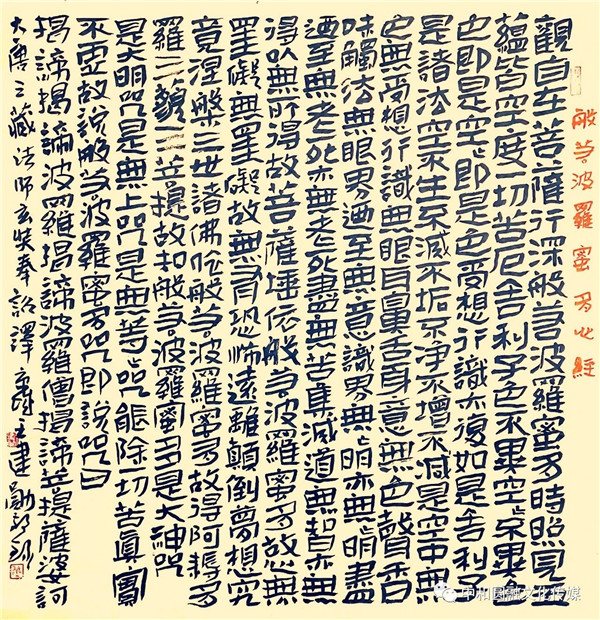 般若波羅蜜多心經
觀自在菩薩行深般若波羅蜜多時照見五
蘊皆空度一切苦厄舍利子色不異空〻不異色
色即是空〻即是色受想行識亦復如是舍利子
是諸法空不生不滅不垢不淨不增不減是空中無
色無受想行識無眼耳鼻舌身意無色聲香
味觸法無眼界迺至無意識界無〻明亦無〻明盡
迺至無老死亦無老死盡無苦集滅道無智亦無
得以無所得故菩薩埵依般若波羅蜜多故心無
罣礙無罣礙故無有恐怖遠離顛倒夢想究
竟涅槃三世諸佛依般若波羅蜜多故得阿耨多
羅三藐三菩提故知般若波羅蜜多是大神咒
是大明咒是無上咒是無等〻咒能除切苦真實
不虛故說般若波羅蜜多咒即說咒曰
揭諦揭諦波羅揭諦波羅僧揭諦菩提薩婆訶
大唐三藏法師玄奘奉詔譯 王建勛
中和圆融文化传媒